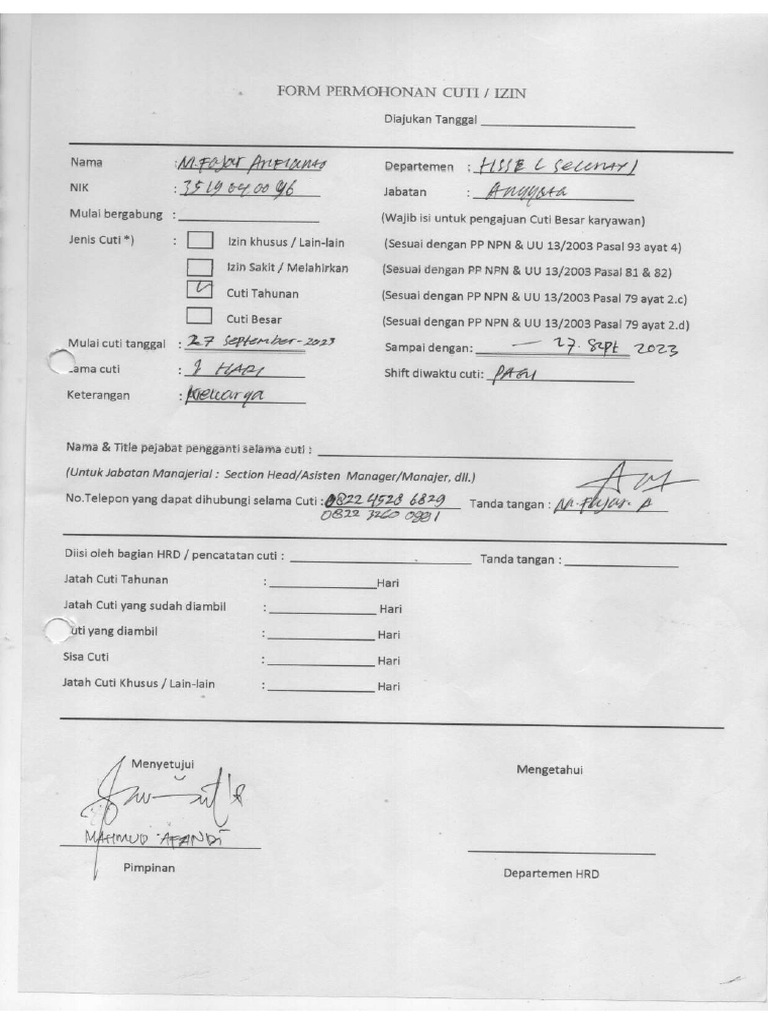 FORM PERMOHONAN CUTI / IZIN
Diajukan Tanggal
Nama : M. Fajar Arifianto Departemen : HSSE (Security)
NIK : 3519040096 Jabatan : Anggota
Mulai bergabung : (Wajib isi untuk pengajuan Cuti Besar karyawan)
Jenis Cuti *) : Izin khusus / Lain-lain (Sesuai dengan PP NPN & UU 13/2003 Pasal 93 ayat 4)
Izin Sakit / Melahirkan (Sesuai dengan PP NPN & UU 13/2003 Pasal 81 & 82)
Cuti Tahunan (Sesuai dengan PP NPN & UU 13/2003 Pasal 79 ayat 2.c)
Cuti Besar (Sesuai dengan PP NPN & UU 13/2003 Pasal 79 ayat 2.d)
Mulai cuti tanggal : 27 September-2023 Sampai dengan: — 27. Sept 2023
ama cuti : HARI Shift diwaktu cuti: PAGI
Keterangan : Keluarga
Nama & Title pejabat pengganti selama cuti :
(Untuk Jabatan Manajerial : Section Head/Asisten Manager/Manajer, dll.)
No.Telepon yang dapat dihubungi selama Cuti : 0822 4528 6829 Tanda tangan : M. Fajar. A
0822 3260 0991
Diisi oleh bagian HRD / pencatatan cuti : Tanda tangan :
Jatah Cuti Tahunan : Hari
Jatah Cuti yang sudah diambil : Hari
uti yang diambil : Hari
Sisa Cuti : Hari
Jatah Cuti Khusus / Lain-lain : Hari
Menyetujui Mengetahui
MAHMUD AFANDI
Pimpinan Departemen HRD